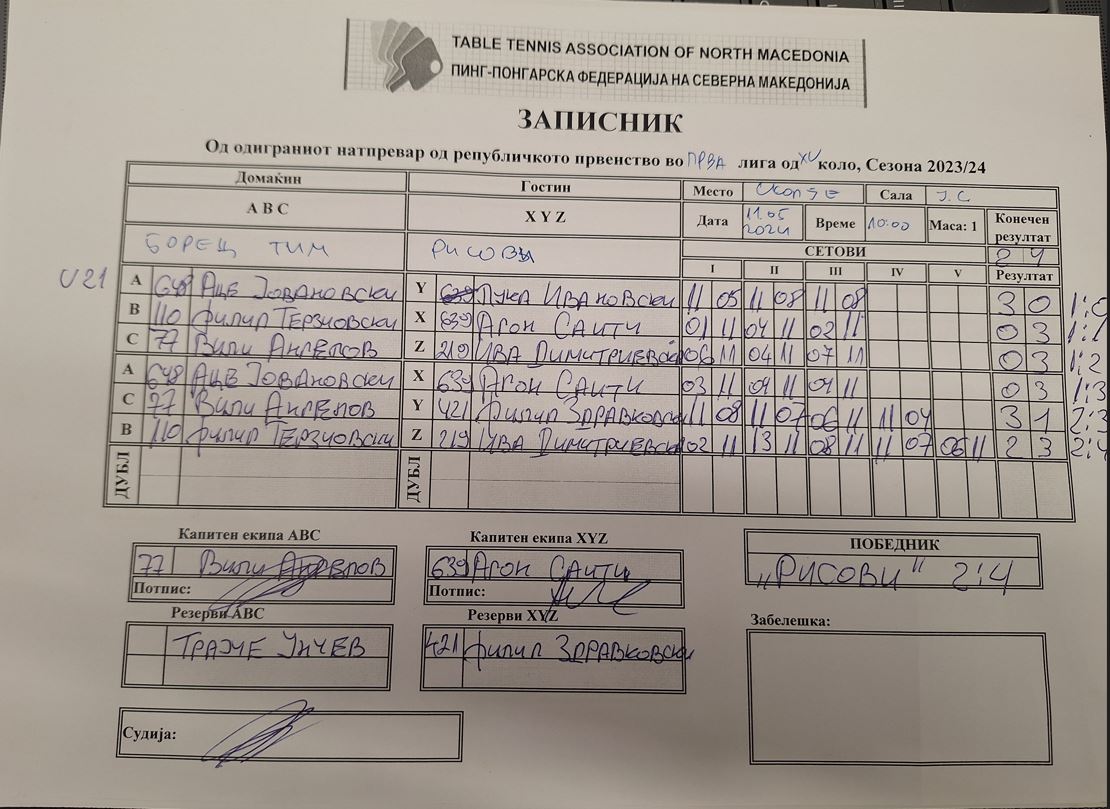 TABLE TENNIS ASSOCIATION OF NORTH MACEDONIA
ПИНГ-ПОНГАРСКА ФЕДЕРАЦИЈА НА СЕВЕРНА МАКЕДОНИЈА
ЗАПИСНИК
Од одиграниот натпревар од републичкото првенство во ПРВА лига од XV коло, Сезона 2023/24
Домаќин Гостин Место Скопје Сала Ј.С
A B C X Y Z Дата 11.05 2024 Време 10:00 Маса: 1 Конечен резултат
БОРЕЦ ТИМ РИСОВИ СЕТОВИ 2 4
I II III IV V Резултат
U21 A 648 АЦЕ ЈОВАНОВСКИ Y ЛУКА ИВАНОВСКИ 11 05 11 08 11 08 3 0 1:0
B 110 ФИЛИП ТЕРЗИОВСКИ X 639 АГОН САИТИ 01 11 04 11 02 11 0 3 1:1
C 77 ВИЛИ АНГЕЛОВ Z 219 ИВА ДИМИТРИЕВСКА 06 11 04 11 07 11 0 3 1:2
A 648 АЦЕ ЈОВАНОВСКИ X 639 АГОН САИТИ 03 11 09 11 09 11 0 3 1:3
C 77 ВИЛИ АНГЕЛОВ Y 421 ФИЛИП ЗДРАВКОВСКИ 11 08 11 07 06 11 11 04 3 1 2:3
B 110 ФИЛИП ТЕРЗИОВСКИ Z 219 ИВА ДИМИТРИЕВСКА 02 11 13 11 08 11 11 07 06 11 2 3 2:4
ДУБЛ ДУБЛ
Капитен екипа ABC Капитен екипа XYZ ПОБЕДНИК
77 ВИЛИ АНГЕЛОВ 639 АГОН САИТИ „РИСОВИ“ 2:4
Потпис: Потпис:
Резерви ABC Резерви XYZ Забелешка:
ТРАЈЧЕ 421 ФИЛИП ЗДРАВКОВСКИ
Судија: